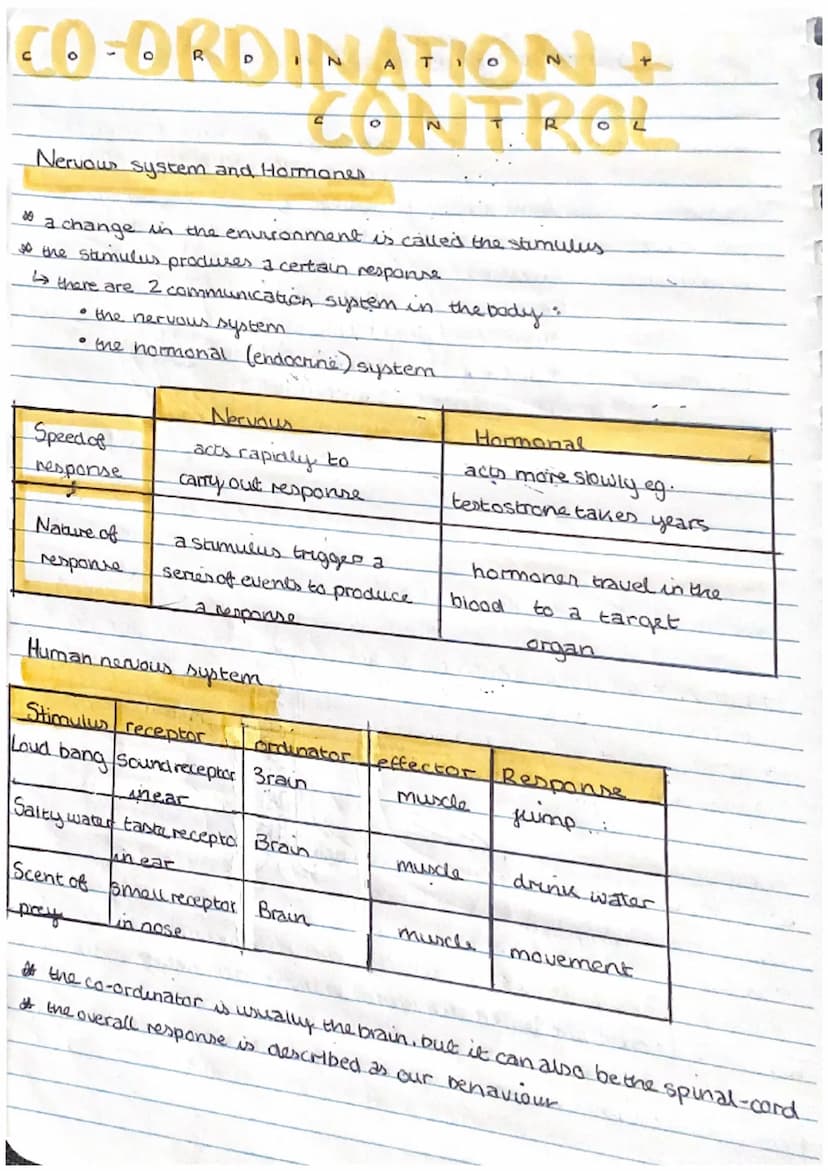 CO-ORDINATION +
CONTROL
Nervous system and Hormones
* a change in the environment is called the stimulus
* the stimulus produces a certain response
↳ there are 2 communication system in the body :
• the nervous system
• the hormonal (endocrine) system
Nervous
Hormonal
Speed of
response
acts rapidly to
carry out response
acts more slowly eg.
testostrone takes years
Nature of
response
a stimulus trigges a
series of events to produce
a response
hormones travel in the
blood to a target
organ
Human nervous system
Stimulus receptor ordinator effector Response
Loud bang Sound receptor Brain muscle jump
in ear
Salty water taste recepto Brain muscle drink water
in ear
Scent of smell receptor Brain muscle movement
prey in nose
* the co-ordinator is usually the brain, but it can also be the spinal-cord
* the overall response is described as our behaviour